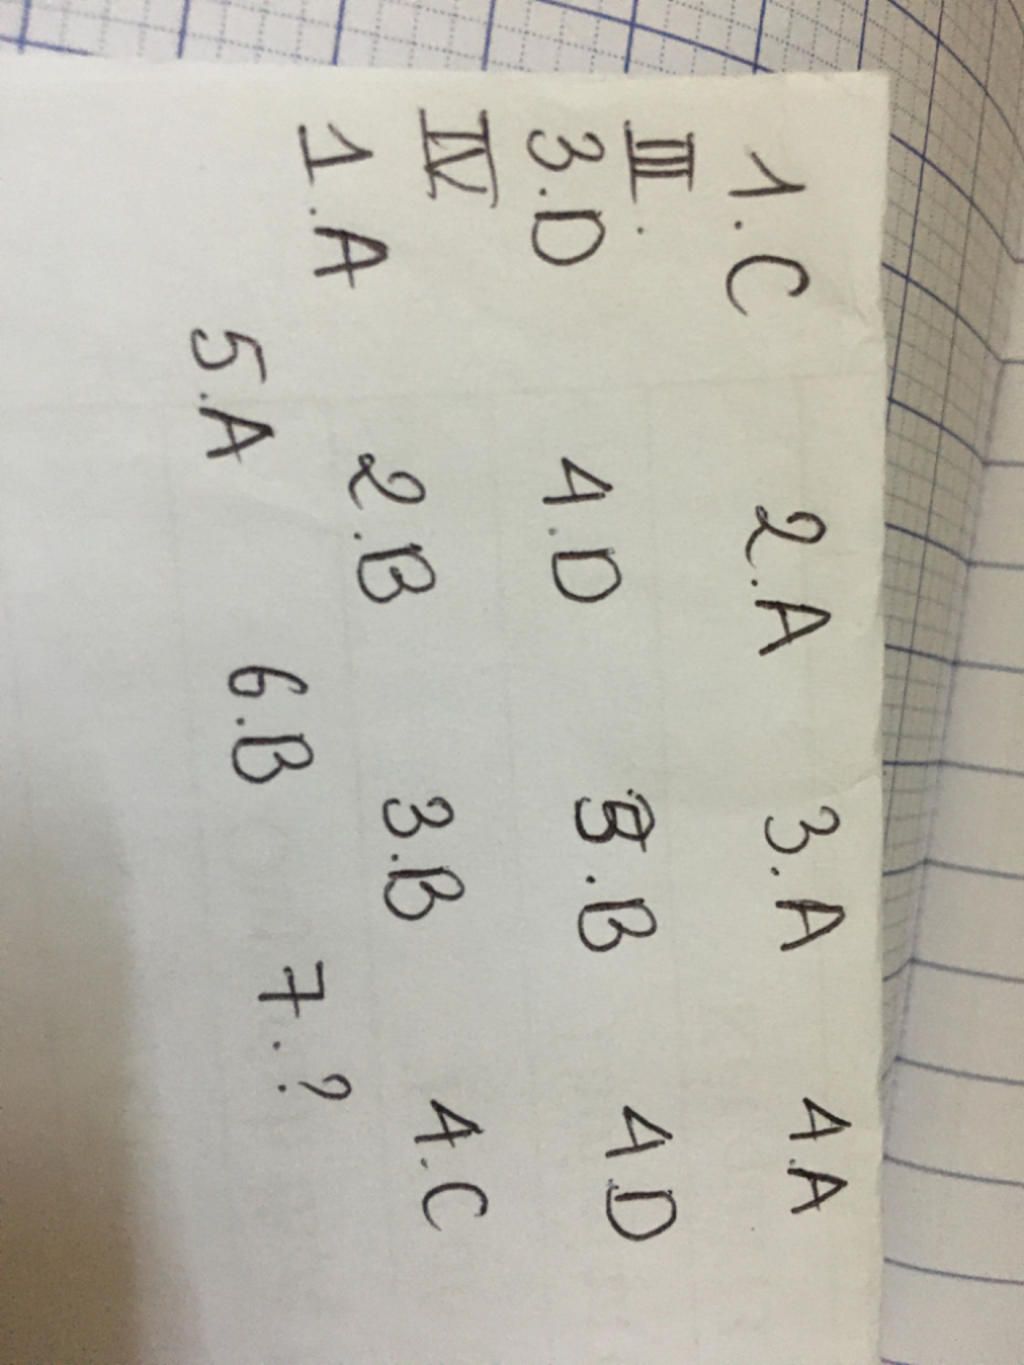 1.C 2.A 3.A 4.A
III.
3.D 4.D 5.B 4.D
IV
1.A 2.B 3.B 4.C
5.A 6.B 7.?